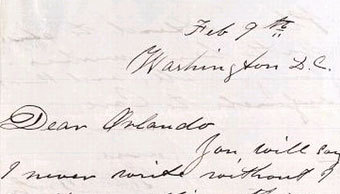 Feb 9th
Washington D.C.
Dear Orlando
You will say
I never write without I